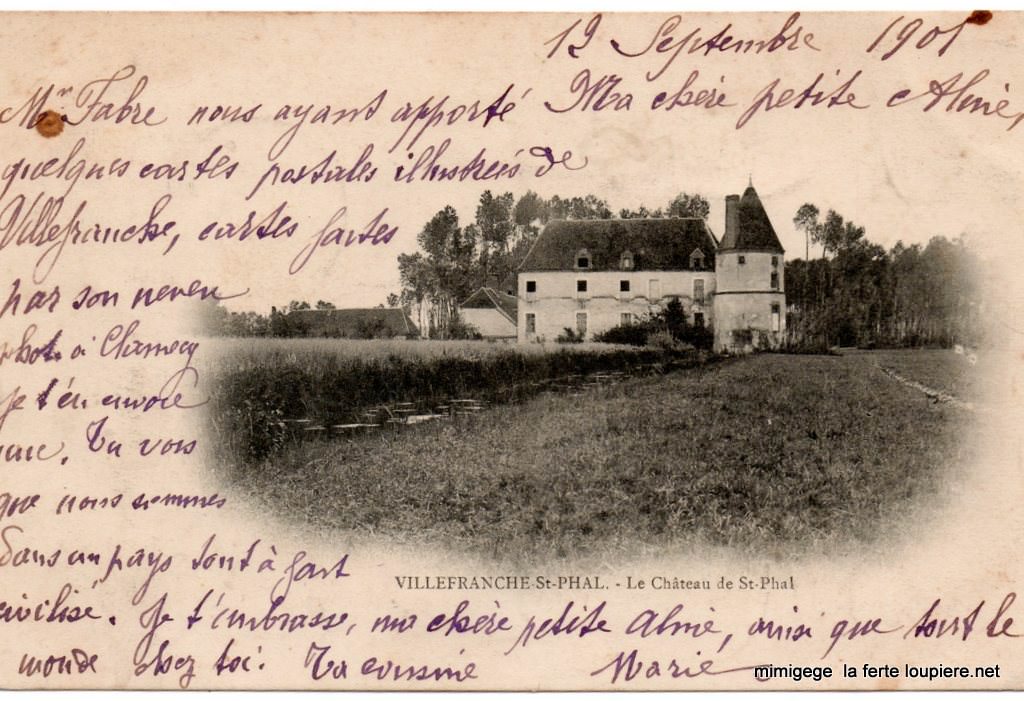 12 Septembre 1901
Ma chère petite Aline,
Mr Fabre nous ayant apporté
quelques cartes postales illustrées de
Villefranche, cartes faites
par son neveu
phot. à Charnecy
Je t'en envoie
une. Tu vois
que nous sommes
dans un pays tout à fait
civilisé. Je t'embrasse, ma chère petite Aline, ainsi que tout le
monde chez toi. Ta cousine Marie
VILLEFRANCHE-St-PHAL. - Le Château de St-Phal
mimigege la ferte loupiere.net